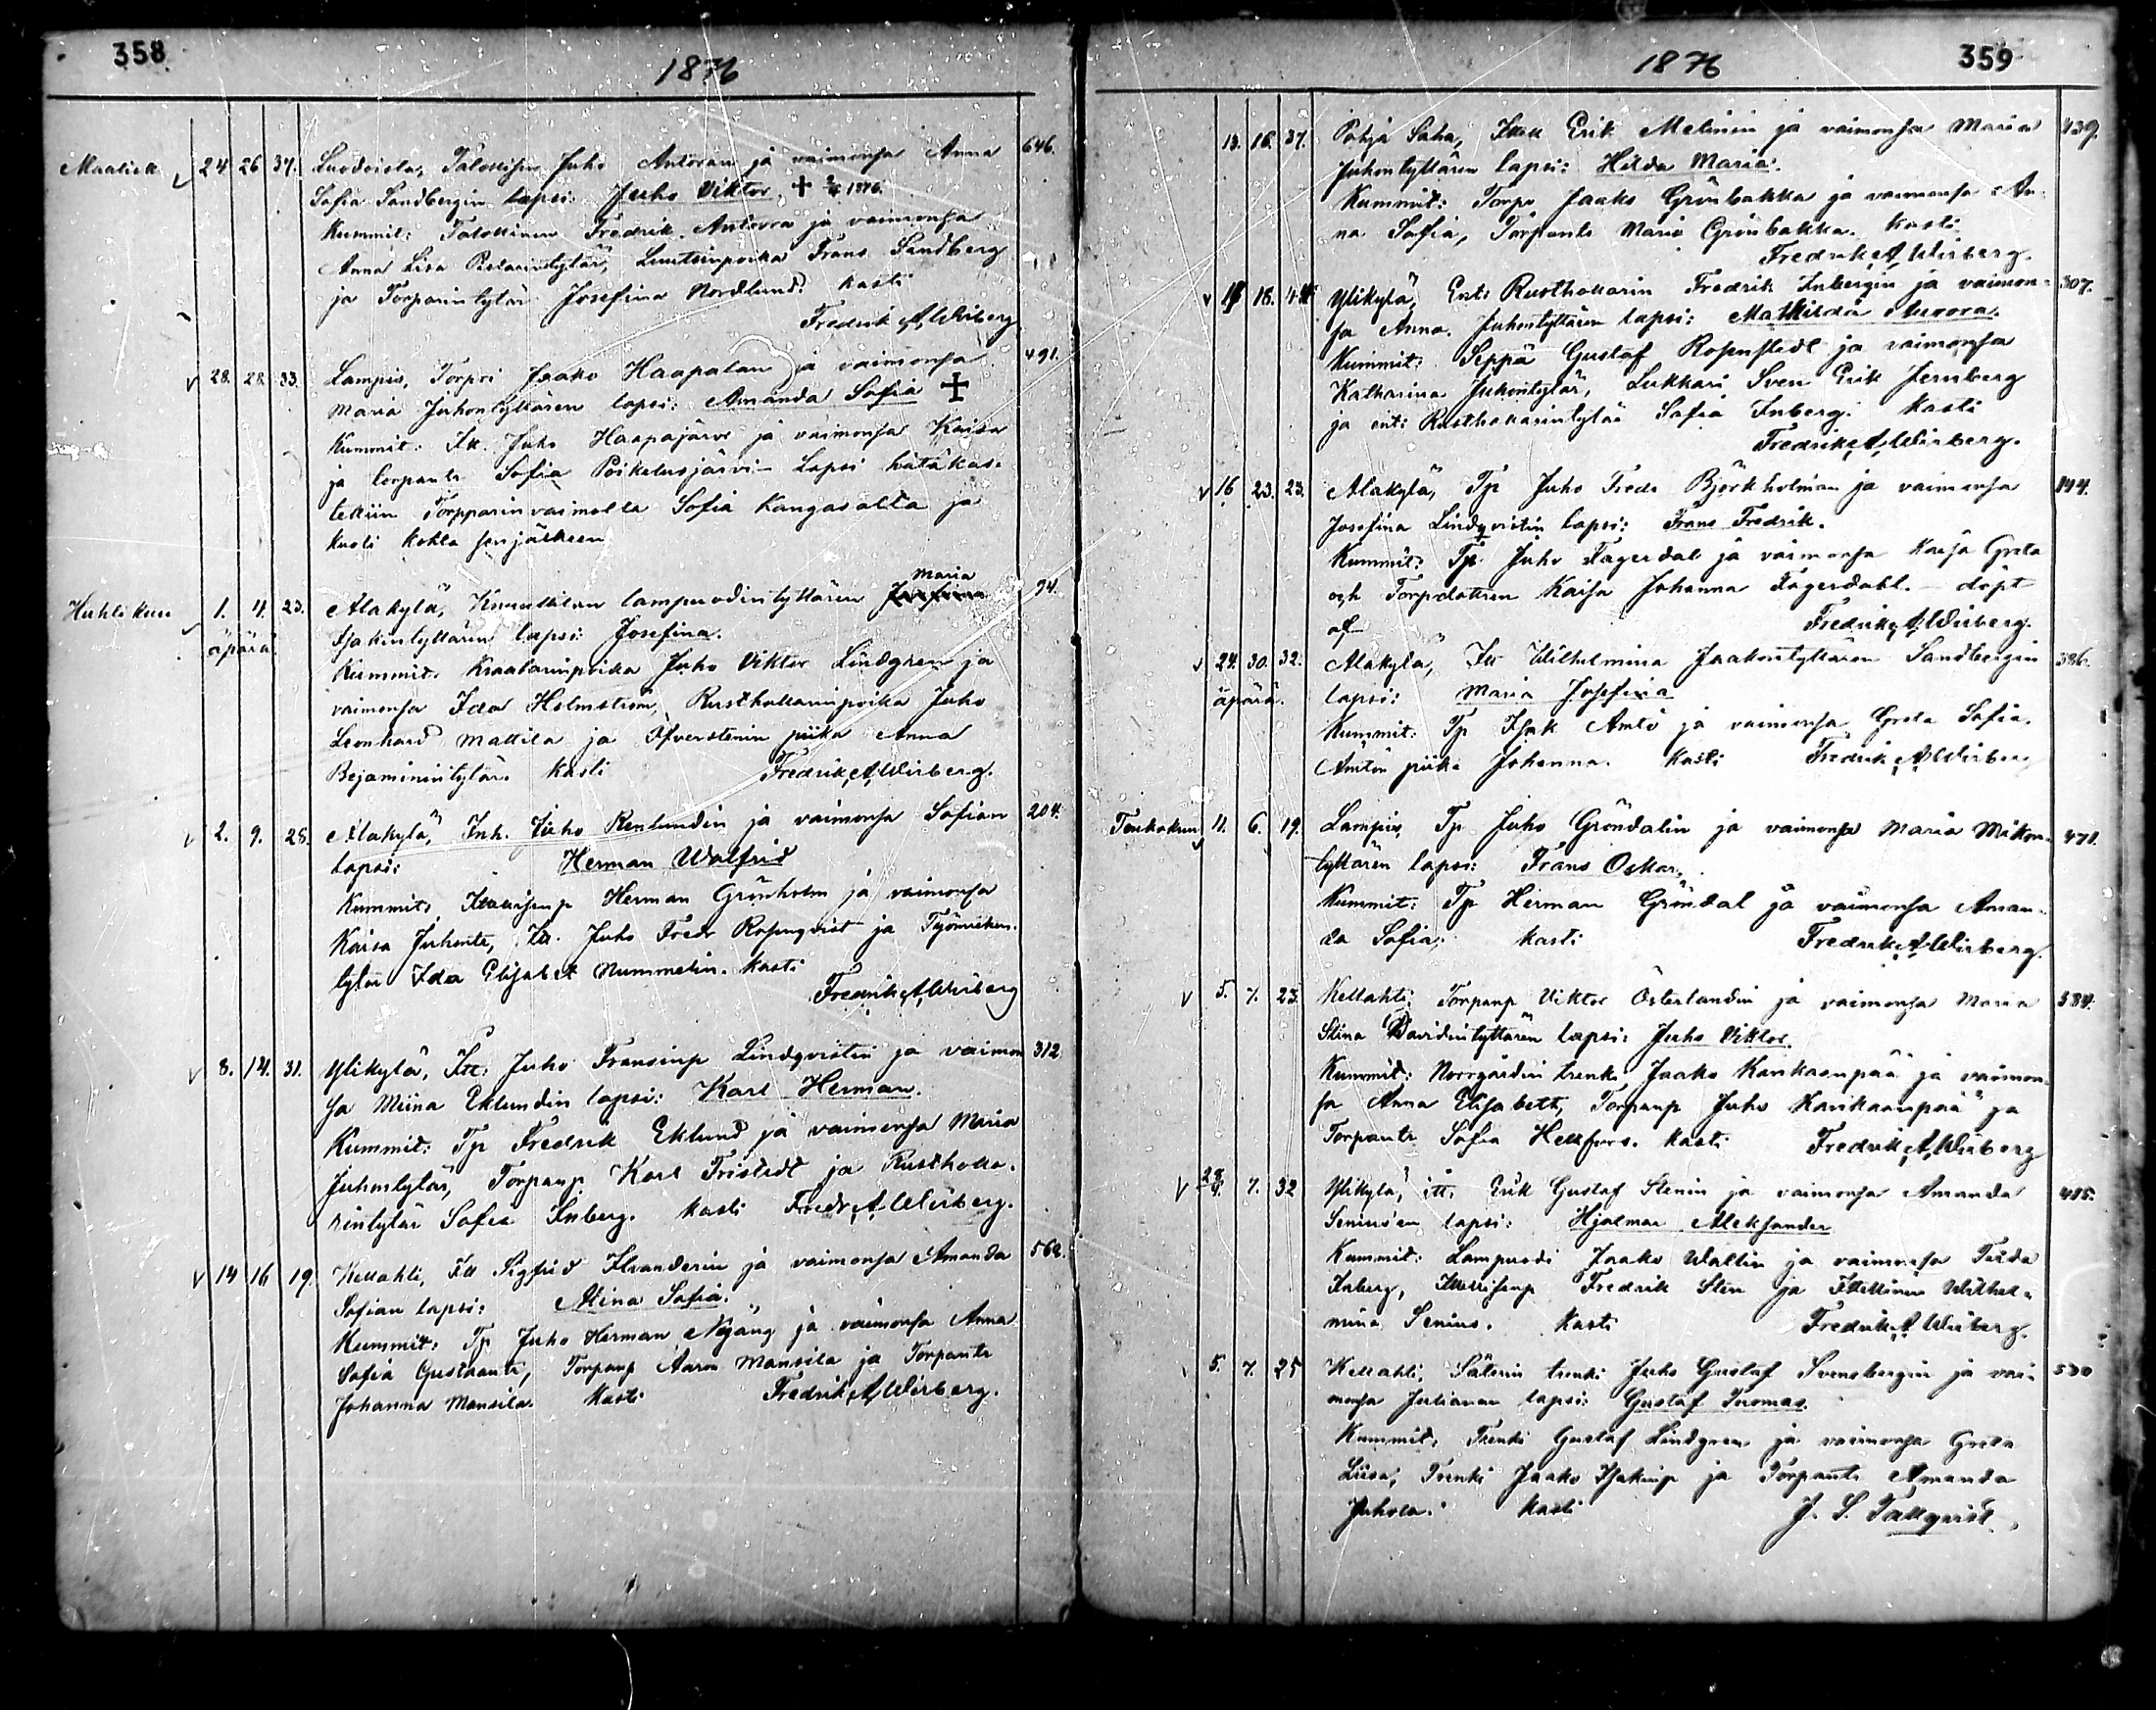 358
1876
Maalisk 24 26 37. Luodoista, Talollisen Juho Antoran ja vaimonsa Anna 646.
Sofia Sandbergin lapsi: Juho Viktor + 1876.
Kummit: Talollinen Fredrik Antoora ja vaimonsa
Anna Lisa Frans Sandberg
ja Torparintytär Josefina Nordlund. kasti
Fredrik A. Wirberg
28. 28 33. Lampis, Torpri Jaako Haapalan ja vaimonsa 491.
Maria Juhontyttären lapsi: Amanda Sofia +
Kummit: Itl. Juho Haapajärvi ja vaimonsa Kaisa
ja torpantr Sofia Poikelusjärvi - Lapsi hätäkas-
tettiin Torpparinvaimolta Sofia Kangasalta ja
kuoli kohta sen jälkeen
Huhtikuu 1. 4. 23. Alakylä, Knuutilan lampuodintyttären Maria 94.
äpärä Isakintyttären lapsi: Josefina.
Kummit. Kraatarinpoika Juho Viktor Lindgren ja
vaimonsa Ida Holmström, Rusthollarinpoika Juho
Leonhard Mattila ja Öfverstenin piika Anna
Bejaminintytär. kasti Fredrik A. Wirberg.
2. 9. 28. Alakylä, Inh. Juho Renlundin ja vaimonsa Sofian 204.
lapsi: Herman Walfrid
Kummit, Herman Grönholm ja vaimonsa
Kaisa Juhontr, Itl. Juho Fredr Rosenqvist ja Työmiehen-
tytär Ida Elisabet Nummelin. kasti
Fredrik A. Wirberg
8. 14. 31. Ylikylä, Itl. Juho Fransinp Lindqvistin ja vaimon 312
sa Miina Eklundin lapsi: Karl Herman.
Kummit: Tp Fredrik Eklund ja vaimonsa Maria
Juhontytär, Torpanp Karl Tristedt ja Rustholla-
rintytär Sofia Inberg. kasti Fredr. A. Wirberg.
14 16 19. Kellahti, Itl Sigfrid Ilvanderin ja vaimonsa Amanda 562.
Sofian lapsi: Alina Sofia.
Kummit: Tp Juho Herman Nygång ja vaimonsa Anna
Sofia Gustaantr, Torpanp Aaron Mansila ja Torpantr
Johanna Mansila. kasti Fredrik A. Wirberg.
1876
359
13. 16. 37. Pohja Saha, Erik Melinin ja vaimonsa Maria 439.
Juhontyttären lapsi: Hilda Maria.
Kummit: Torpr Jaako Grönbakka ja vaimonsa An-
na Sofia, Torpantr Maria Grönbakka. kasti
Fredrik A. Wirberg.
18. Ylikylä, Ent: Rusthollarin Fredrik Inbergin ja vaimon- 307.
sa Anna Juhontyttären lapsi: Mathilda Aurora.
Kummit: Seppä Gustaf Rosenstedt ja vaimonsa
Katharina Juhontytär, Lukkari Sven Erik Jernberg
ja ent: Rusthollarintytär Sofia Inberg. kasti
Fredrik A. Wirberg.
16 23. 23. Alakylä, Tp Juho Fredr Björkholman ja vaimonsa 144.
Josefina Lindqvistin lapsi: Frans Fredrik.
Kummit: Tp Juho Fagerdal ja vaimonsa Kaisa Greta
och Torpdottren Kaisa Johanna Fagerdahl. - döpt
af Fredrik A. Wirberg.
24. 30. 32. Alakylä, Itl Wilhelmina Jaakontyttären Sandbergin 386.
äpärä. lapsi: Maria Josefina
Kummit: Tp Isak Anttö ja vaimonsa Greta Sofia.
Anttön piika Johanna. kasti Fredrik A. Wirberg
Toukokuu 4. 6. 19. Lampis, Tp Juho Gröndalin ja vaimonsa Maria Mikon- 471.
tyttären lapsi: Frans Oskar.
Kummit: Tp Herman Gröndal ja vaimonsa Aman-
da Sofia. kasti Fredrik A. Wirberg.
5. 7. 23. Kellahti, Torpanp Viktor Österlundin ja vaimonsa Maria 584.
Stina Davidintyttären lapsi: Juho Viktor.
Kummit: Norrgårdin trenki Jaako Kankaanpää ja vaimon-
sa Anna Elisabett, Torpanp Juho Kankaanpää ja
Torpantr Sofia Hellfors. kasti Fredrik A. Wirberg
7. 32 Ylikylä, itl. Erik Gustaf Stenin ja vaimonsa Amanda 415.
Senius'en lapsi: Hjalmar Aleksander
Kummit: Lampuodi Jaako Wallin ja vaimonsa
Inberg, Fredrik Sten ja Itsellinen Wilhel-
mina Senius. kasti Fredrik A. Wirberg.
5. 7. 25 Kellahti, Säterin trenki Juho Gustaf Svensbergin ja vai- 530
monsa Julianan lapsi: Gustaf Tuomas.
Kummit, Trenki Gustaf Lindgren ja vaimonsa Greta
Liisa, Trenki Jaako Isakinp ja Torpantr Amanda
Juhola. kasti J. S. Tallqvist.